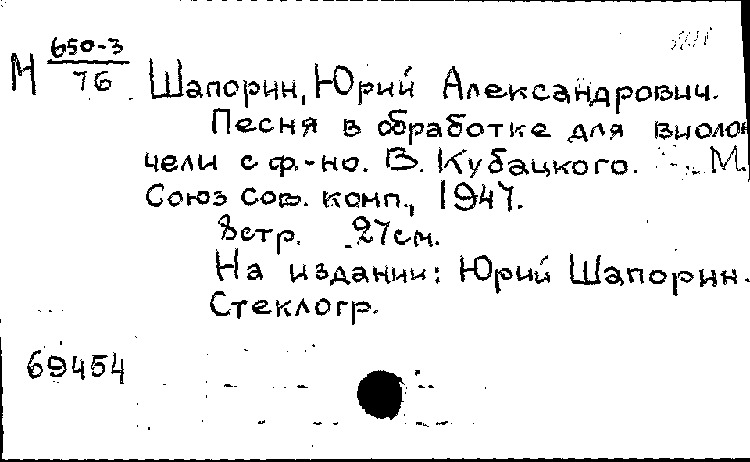 М 650-3/76
Шапорин, Юрий Александрович.
Песня в обработке для виолон
чели с ф.-но. В. Кубацкого. М.
Союз сов. комп., 1947.
8стр. 27см.
На издании: Юрий Шапорин.
Стеклогр.
69454